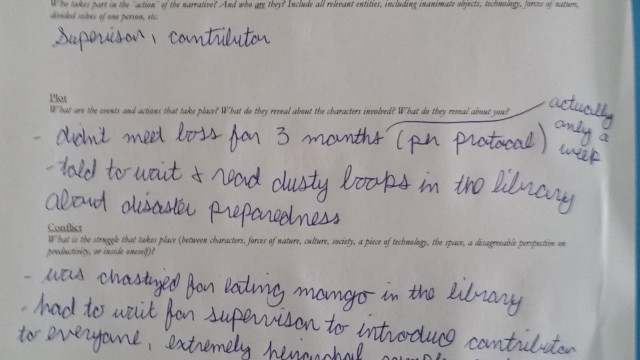 Who takes part in the 'action' of the narrative? And who are they? Include all relevant entities, including inanimate objects, technology, forces of nature,
divided selves of one person, etc.
Supervisor, contributor
Plot
What are the events and actions that take place? What do they reveal about the characters involved? What do they reveal about you?
- didn't meet boss for 3 months (per protocol)
actually
only a
week
- told to wait & read dusty books in the library
about disaster preparedness
Conflict
What is the struggle that takes place (between characters, forces of nature, culture, society, a piece of technology, the space, a disagreeable perspective on
productivity, or inside oneself)?
- was chastized for eating mango in the library
- had to wait for supervisor to introduce contributor
to everyone, extremely